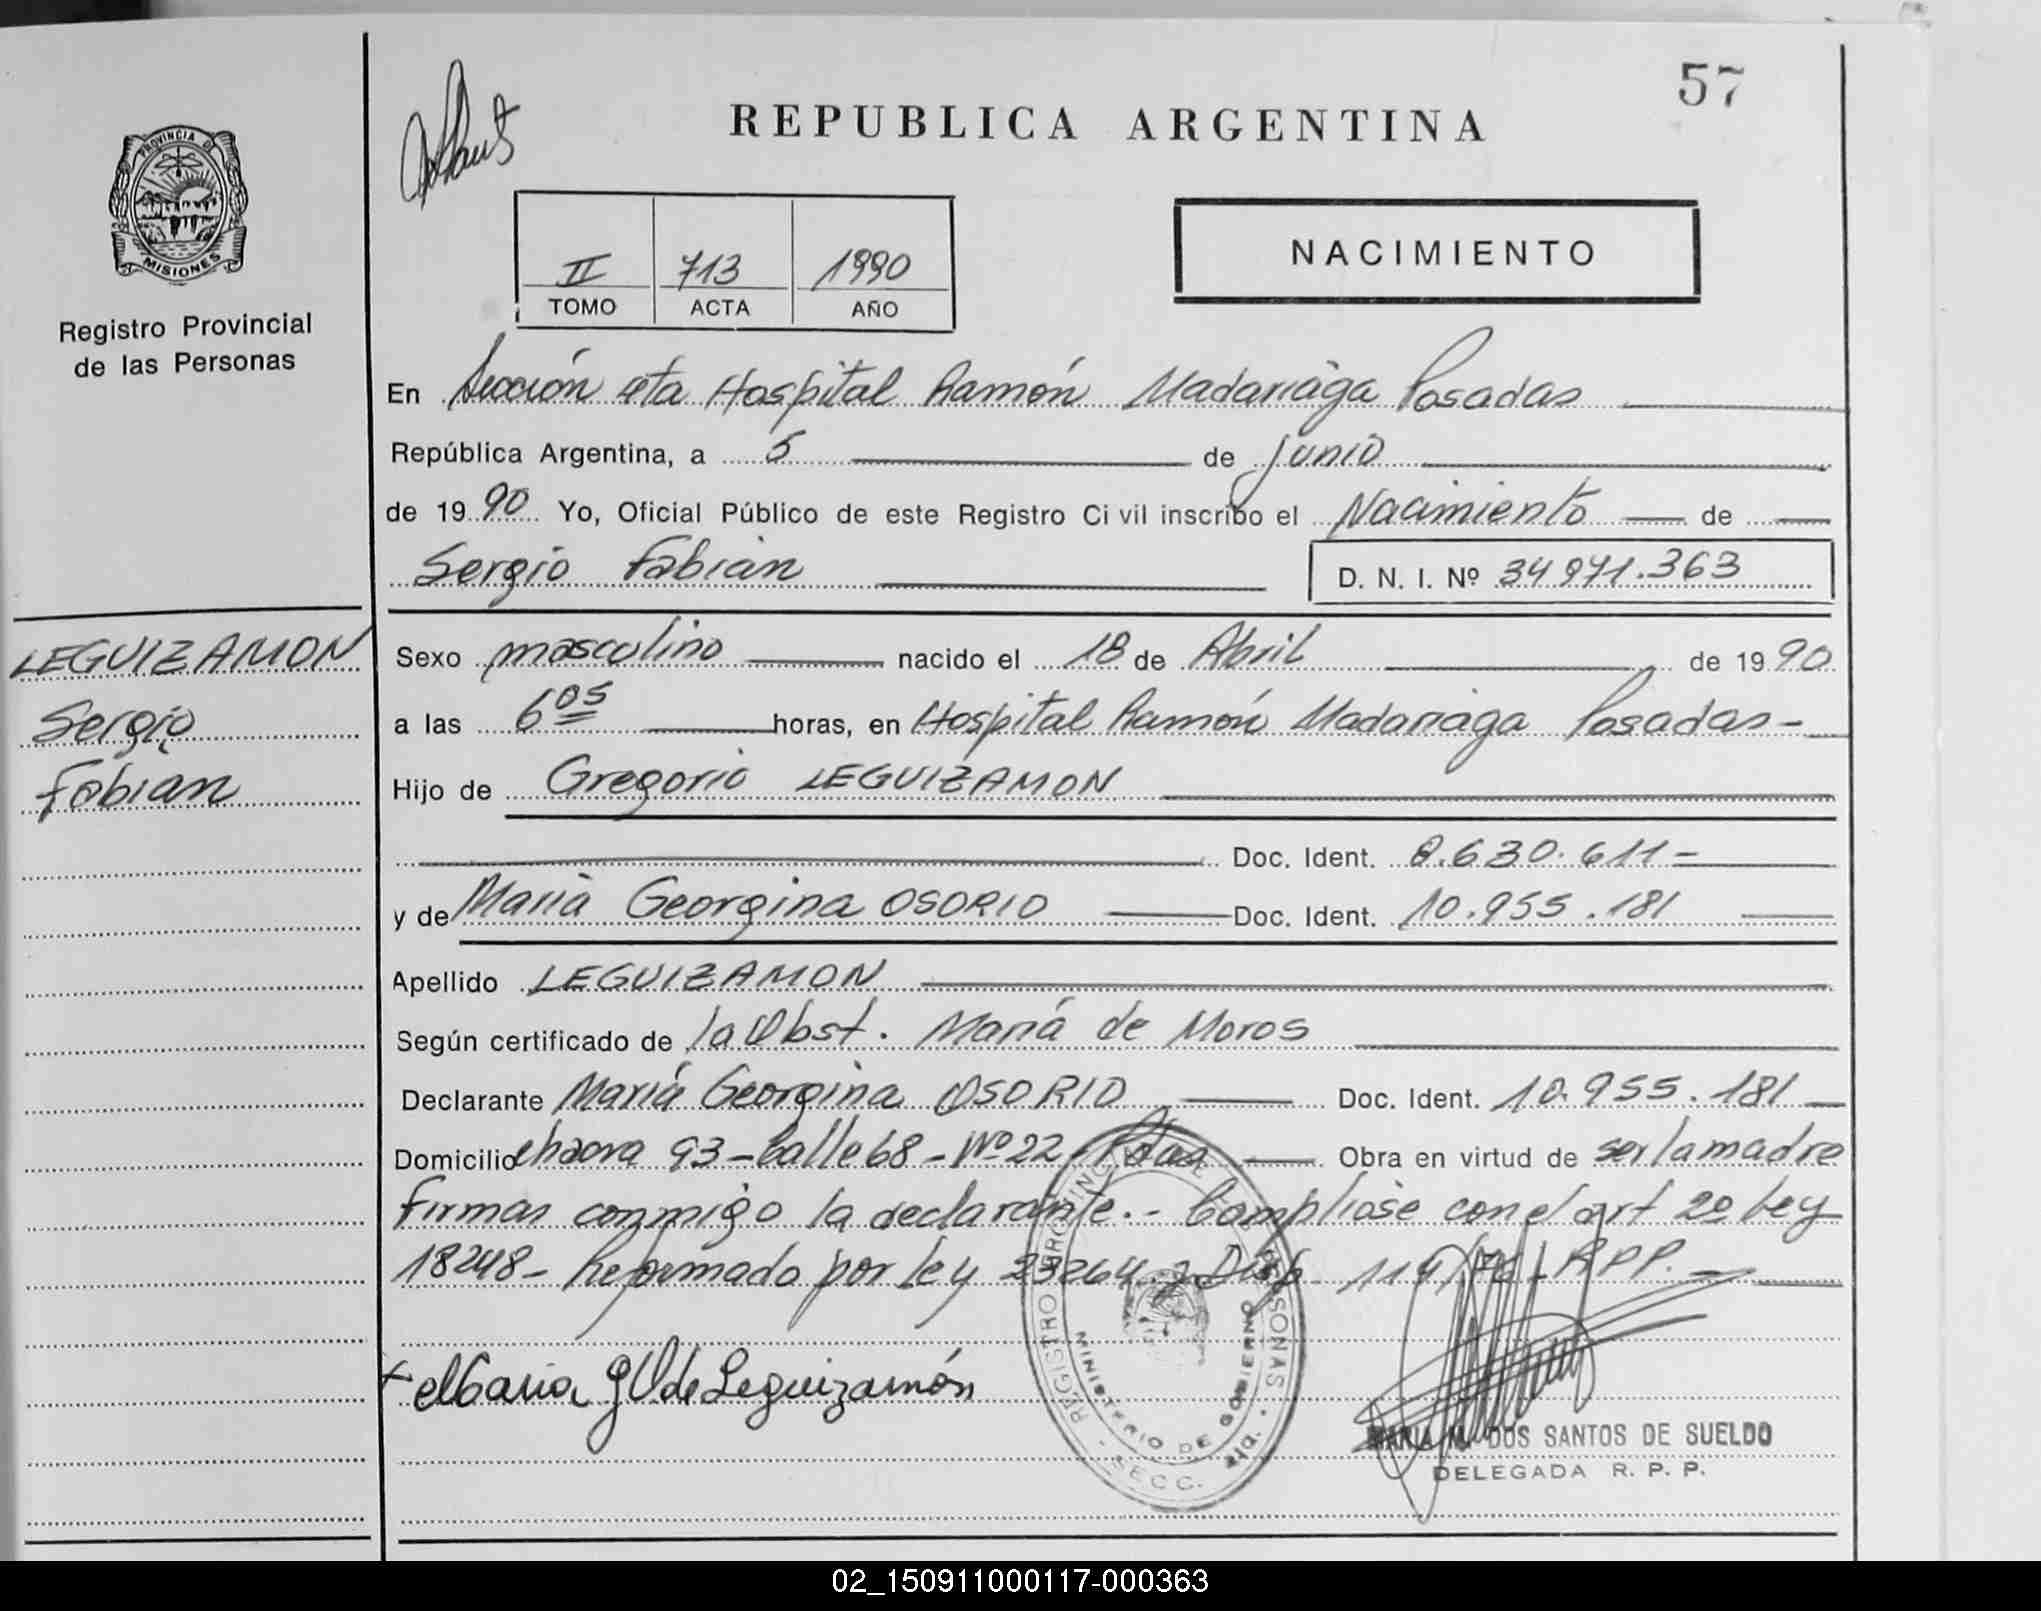 57
REPUBLICA ARGENTINA
PROVINCIA D
MISIONES
Registro Provincial
de las Personas
NACIMIENTO
II 713 1990
TOMO ACTA AÑO
En Sección 4ta Hospital Ramón Madariaga Posadas
República Argentina, a 5 de junio
de 1990 Yo, Oficial Público de este Registro Civil inscribo el Nacimiento de
Sergio Fabian D. N. I. Nº 34971.363
LEGUIZAMON
Sergio
Fabian
Sexo masculino nacido el 18 de Abril de 1990
a las 6 05 horas, en Hospital Ramón Madariaga Posadas-
Hijo de Gregorio LEGUIZAMON
Doc. Ident. 8.630.611-
y de Maria Georgina OSORIO Doc. Ident. 10.955.181
Apellido LEGUIZAMON
Según certificado de la Obst. María de Moros
Declarante María Georgina OSORIO Doc. Ident. 10.955.181
Domicilio chacra 93-Calle 68-Nº 22 Pdas Obra en virtud de ser la madre
firman conmigo la declarante.- Cumpliose con el art 2º Ley
18248- Reformado por Ley 23264 y Disp. RPP.
Maria G O de Leguizamón
REGISTRO PROVINCIAL DE LAS PERSONAS
MINISTERIO DE GOBIERNO
SECC.
MARIA M. DOS SANTOS DE SUELDO
DELEGADA R. P. P.
02_150911000117-000363